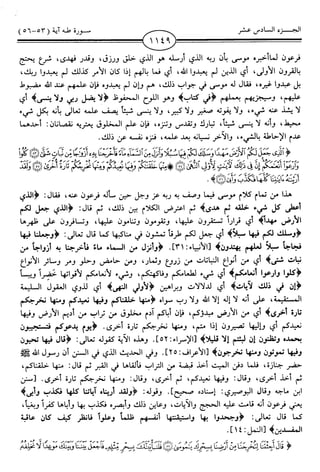 سورة طه آية (٥٣-٥٦)
١١٤٩
الجزء السادس عشر
فرعون لما أخبره موسى بأن ربه الذي أرسله هو الذي خلق ورزق، وقدر فهدى، شرع يحتج
بالقرون الأولى، أي الذين لم يعبدوا الله، أي فما بالهم إذا كان الأمر كذلك لم يعبدوا ربك،
بل عبدوا غيره، فقال له موسى في جواب ذلك، هم وإن لم يعبدوه فإن علمهم عند الله مضبوط
عليهم، وسيجزيهم بعملهم ﴿في كتاب﴾ وهو اللوح المحفوظ ﴿لا يضل ربي ولا ينسى﴾ أي
لا يشذ عنه شيء، ولا يفوته صغير ولا كبير، ولا ينسى شيئاً يصف علمه تعالى بأنه بكل شيء
محيط، وأنه لا ينسى شيئاً، تبارك وتقدس وتنزه، فإن علم المخلوق يعتريه نقصانان: أحدهما
عدم الإحاطة بالشيء، والآخر نسيانه بعد علمه، فنزه نفسه عن ذلك.
﴿الَّذِي جَعَلَ لَكُمُ الْأَرْضَ مَهْدًا وَسَلَكَ لَكُمْ فِيهَا سُبُلًا وَأَنْزَلَ مِنَ السَّمَاءِ مَاءً فَأَخْرَجْنَا بِهِ أَزْوَاجًا مِنْ نَبَاتٍ شَتَّى ۝ كُلُوا
وَارْعَوْا أَنْعَامَكُمْ إِنَّ فِي ذَلِكَ لَآيَاتٍ لِأُولِي النُّهَى ۝ مِنْهَا خَلَقْنَاكُمْ وَفِيهَا نُعِيدُكُمْ وَمِنْهَا نُخْرِجُكُمْ تَارَةً أُخْرَى ۝ وَلَقَدْ أَرَيْنَاهُ
آيَاتِنَا كُلَّهَا فَكَذَّبَ وَأَبَى ۝﴾
هذا من تمام كلام موسى فيما وصف به ربه عز وجل حين سأله فرعون عنه، فقال: ﴿الذي
أعطى كل شيء خلقه ثم هدى﴾ ثم اعترض الكلام بين ذلك، ثم قال: ﴿الذي جعل لكم
الأرض مهداً﴾ أي قراراً تستقرون عليها، وتقومون وتنامون عليها، وتسافرون على ظهرها
﴿وسلك لكم فيها سبلاً﴾ أي جعل لكم طرقاً تمشون في مناكبها كما قال تعالى: ﴿وجعلنا فيها
فجاجاً سبلاً لعلهم يهتدون﴾ [الأنبياء: ٣١]. ﴿وأنزل من السماء ماء فأخرجنا به أزواجاً من
نبات شتى﴾ أي من أنواع النباتات من زروع وثمار، ومن حامض وحلو ومر وسائر الأنواع
﴿كلوا وارعوا أنعامكم﴾ أي شيء لطعامكم وفاكهتكم، وشيء لأنعامكم لأقواتها خضراً ويبساً
﴿إن في ذلك لآيات﴾ أي لدلالات وبراهين ﴿لأولي النهى﴾ أي لذوي العقول السليمة
المستقيمة، على أنه لا إله إلا الله ولا رب سواه ﴿منها خلقناكم وفيها نعيدكم ومنها نخرجكم
تارة أخرى﴾ أي من الأرض مبدؤكم، فإن أباكم آدم مخلوق من تراب من أديم الأرض وفيها
نعيدكم أي وإليها تصيرون إذا متم، ومنها نخرجكم تارة أخرى. ﴿يوم يدعوكم فتستجيبون
بحمده وتظنون إن لبثتم إلا قليلاً﴾ [الإسراء: ٥٢]. وهذه الآية كقوله تعالى: ﴿قال فيها تحيون
وفيها تموتون ومنها تخرجون﴾ [الأعراف: ٢٥]. وفي الحديث الذي في السنن أن رسول الله ﷺ
حضر جنازة، فلما دفن الميت أخذ قبضة من التراب فألقاها في القبر ثم قال: منها خلقناكم،
ثم أخذ أخرى، وقال: وفيها نعيدكم، ثم أخرى، وقال: ومنها نخرجكم تارة أخرى. [سنن
ابن ماجه وقال البوصيري: إسناده صحيح]. وقوله: ﴿ولقد أريناه آياتنا كلها فكذب وأبى﴾
يعني فرعون أنه قامت عليه الحجج والآيات، وعاين ذلك وأبصره، فكذب بها وأباها كفراً وبغياً،
كما قال تعالى: ﴿وجحدوا بها واستيقنتها أنفسهم ظلماً وعلواً فانظر كيف كان عاقبة
المفسدين﴾ [النمل: ١٤].